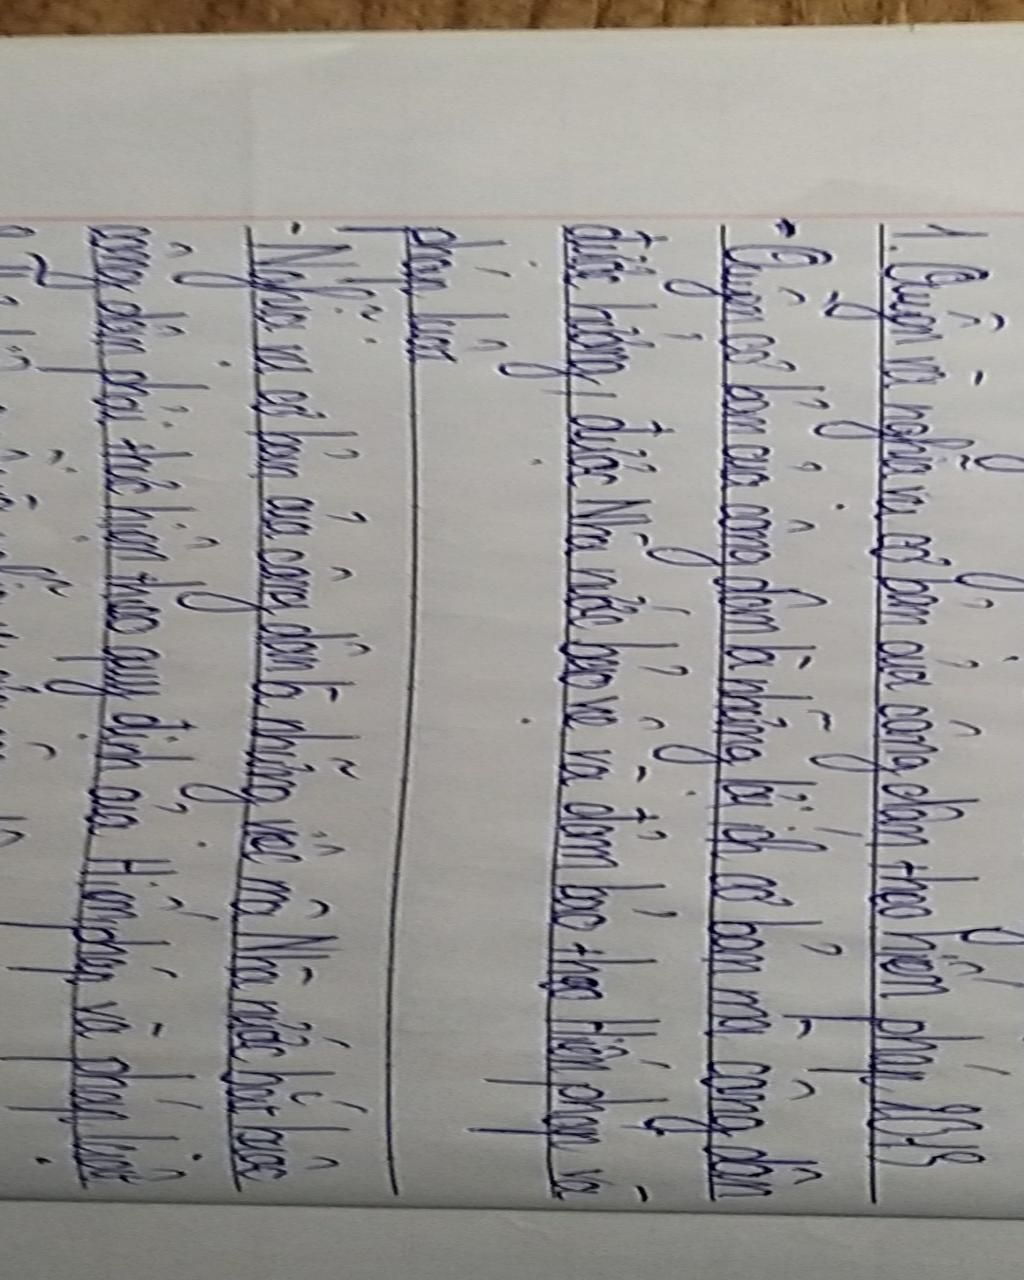 1. Quyền và nghĩa vụ cơ bản của công dân theo hiến pháp 2013
- Quyền cơ bản của công dân là những lợi ích cơ bản mà công dân
được hưởng, được Nhà nước bảo vệ và đảm bảo theo Hiến pháp và
pháp luật
- Nghĩa vụ cơ bản của công dân là những việc mà Nhà nước bắt buộc
công dân phải thực hiện theo quy định của Hiến pháp và pháp luật